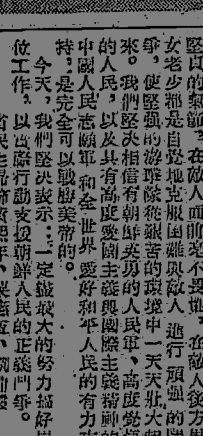 堅貞的氣節，在敵人面前毫不畏怯，在敵人後方男
女老少都是自覺地克服困難與敵人進行頑強的鬥
爭，使堅強的游擊隊從艱苦的環境中一天天壯大起
來。我們堅決相信有朝鮮英勇的人民軍、高度覺悟
的人民，以及具有高度愛國主義與國際主義精神的
中國人民志願軍和全世界愛好和平人民的有力支
持，是完全可以戰勝美帝的。
今天，我們堅決表示：一定盡最大的努力搞好崗
位工作，以實際行動支援朝鮮人民的正義鬥爭。